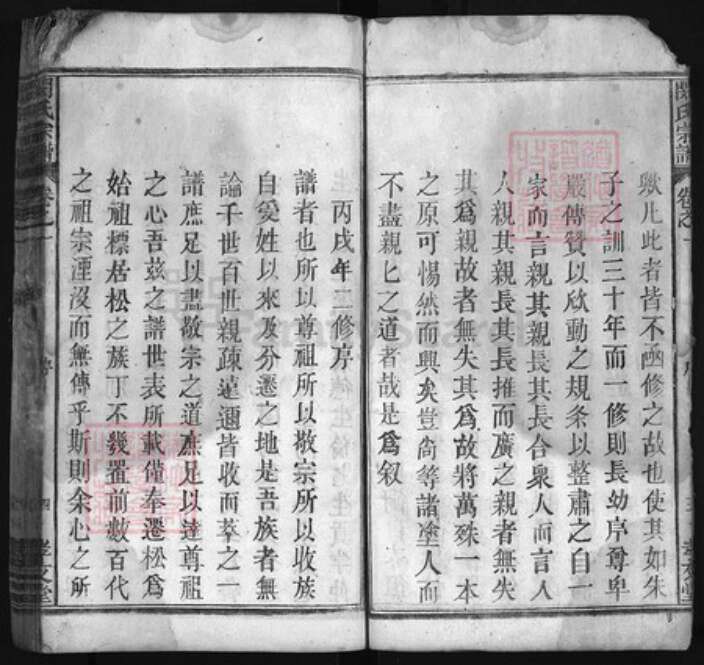 歟凡此者皆不亟修之故也使其如朱
子之訓三十年而一修則長幼序尊卑
嚴傳贊以欣動之規条以整肅之自一
家而言親其親長其長合衆人而言人
人親其親長其長推而廣之親者無失
其爲親故者無失其爲故將萬殊一本
之原可惕然而興矣豈尙等諸塗人而
不盡親匕之道者哉是爲叙
丙戌年二修序
譜者也所以尊祖所以敬宗所以收族
自受姓以來及分遷之地是吾族者無
論千世百世親疎遠邇皆收而萃之一
譜庶足以盡敬宗之道庶足以達尊祖
之心吾兹之譜世表所載僅奉遷松爲
始祖標居松之族丁不幾置前數百代
之祖宗湮沒而無傳乎斯則余心之所
氏宗譜
卷之一
序
四
孝友堂